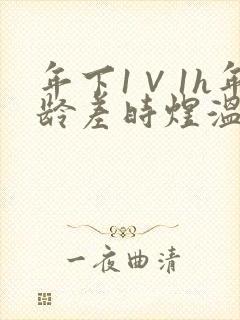 年下1V1h年
龄差时煜温
一夜曲清